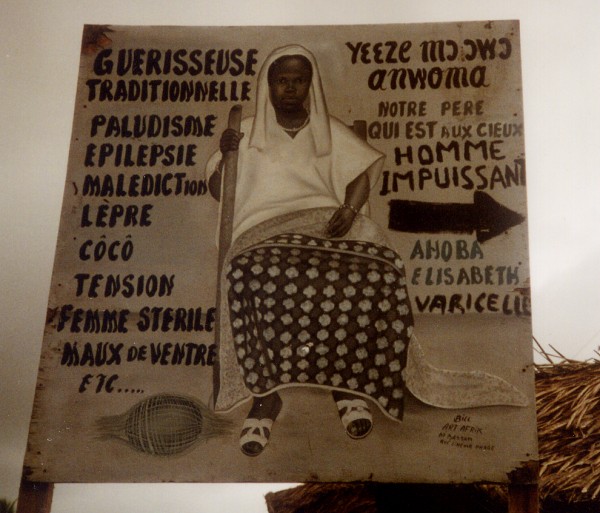 GUERISSEUSE
TRADITIONNELLE
PALUDISME
EPILEPSIE
MALEDICTION
LÈPRE
CÔCÔ
TENSION
FEMME STERILE
MAUX DE VENTRE
ETC.....
anwoma
NOTRE PERE
QUI EST AUX CIEUX
HOMME
IMPUISSANT
AHOBA
ELISABETH
VARICELLE
ART AFRIK